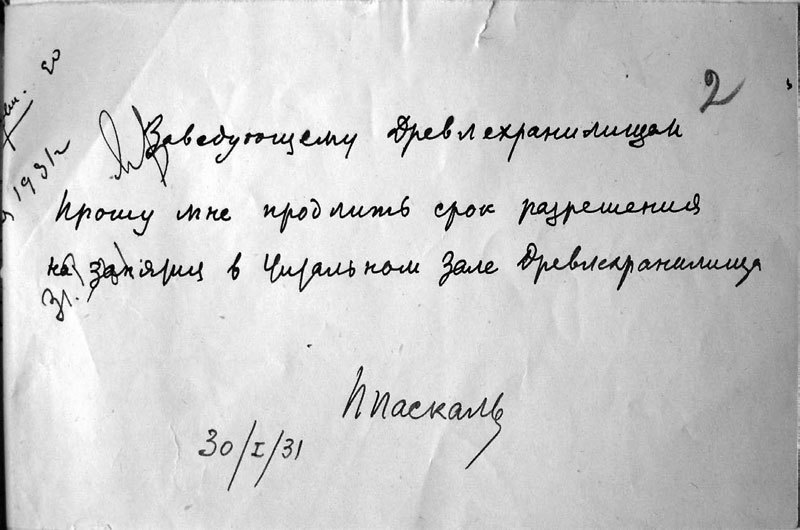 2
Заведующему Древлехранилищем
Прошу мне продлить срок разрешения
на занятия в Читальном Зале Древлехранилища
31.
ППаскаль
30/I/31
20
1931 г